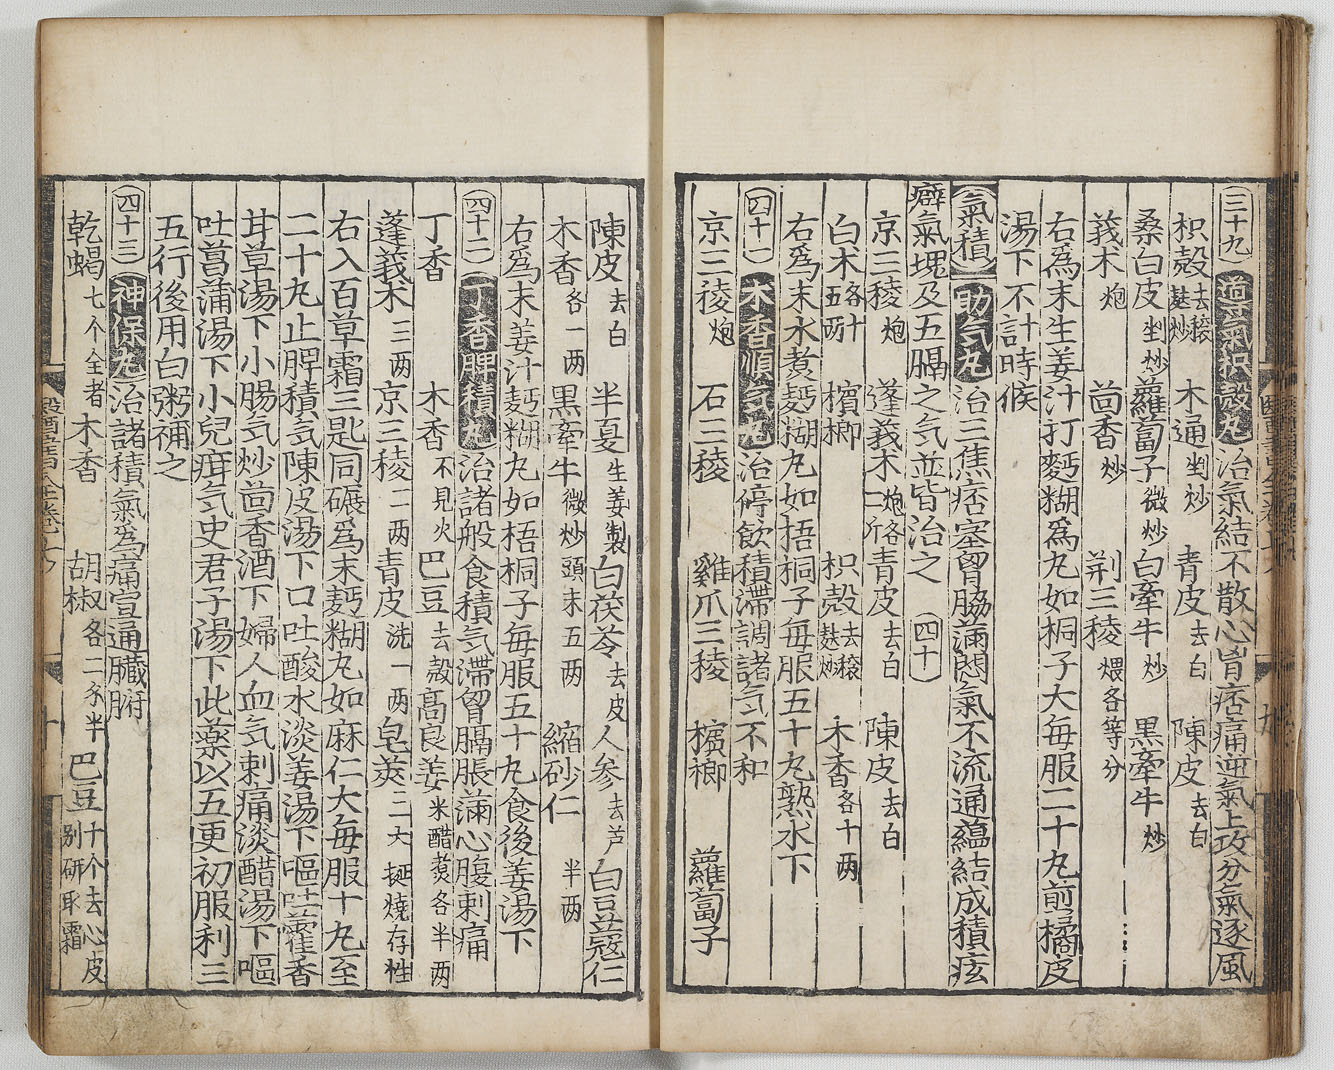 三十九 導氣枳殼丸 治氣結不散心胷痞痛逆氣上攻分氣逐風
枳殼去穰麩炒 木通剉炒 青皮去白 陳皮去白
桑白皮剉炒 蘿蔔子微炒 白牽牛炒 黒牽牛炒
莪术炮 茴香炒 荆三稜煨各等分
右為末生姜汁打麪糊為丸如桐子大每服二十丸煎橘皮
湯下不計時候
氣積 助气丸 治三焦痞塞胷脇滿悶氣不流通蘊結成積痃
癖氣塊及五膈之气並皆治之 四十
京三稜炮 蓬莪术炮各二斤 青皮去白 陳皮去白
白术各十五两 檳榔 枳殼去穰麩炒 木香各十两
右為末水煮麪糊丸如梧桐子每服五十丸熟水下
四十一 木香順气丸 治停飲積滯調諸气不和
京三稜炮 石三稜 雞爪三稜 檳榔 蘿蔔子
陳皮去白 半夏生姜製 白茯苓去皮 人参去芦 白豆蔻仁
木香各一两 黒牽牛微炒頭末五两 縮砂仁半两
右為末姜汁麪糊丸如梧桐子每服五十丸食後姜湯下
四十二 丁香脾積丸 治諸般食積气滯胷膈脹滿心腹刺痛
丁香 木香不見火 巴豆去殼 高良姜米醋煮各半两
蓬莪术三两 京三稜二两 青皮洗一两 皂莢三大挺燒存性
右入百草霜三匙同碾為末麪糊丸如麻仁大每服十丸至
二十丸止脾積气陳皮湯下口吐酸水淡姜湯下嘔吐藿香
甘草湯下小腸气炒茴香酒下婦人血气刺痛淡醋湯下嘔
吐菖蒲湯下小兒疳气史君子湯下此藥以五更初服利三
五行後用白粥補之
四十三 神保丸 治諸積氣為痛宣通臟腑
乾蝎七个全者 木香 胡椒各二錢半 巴豆十个去心皮别研取霜